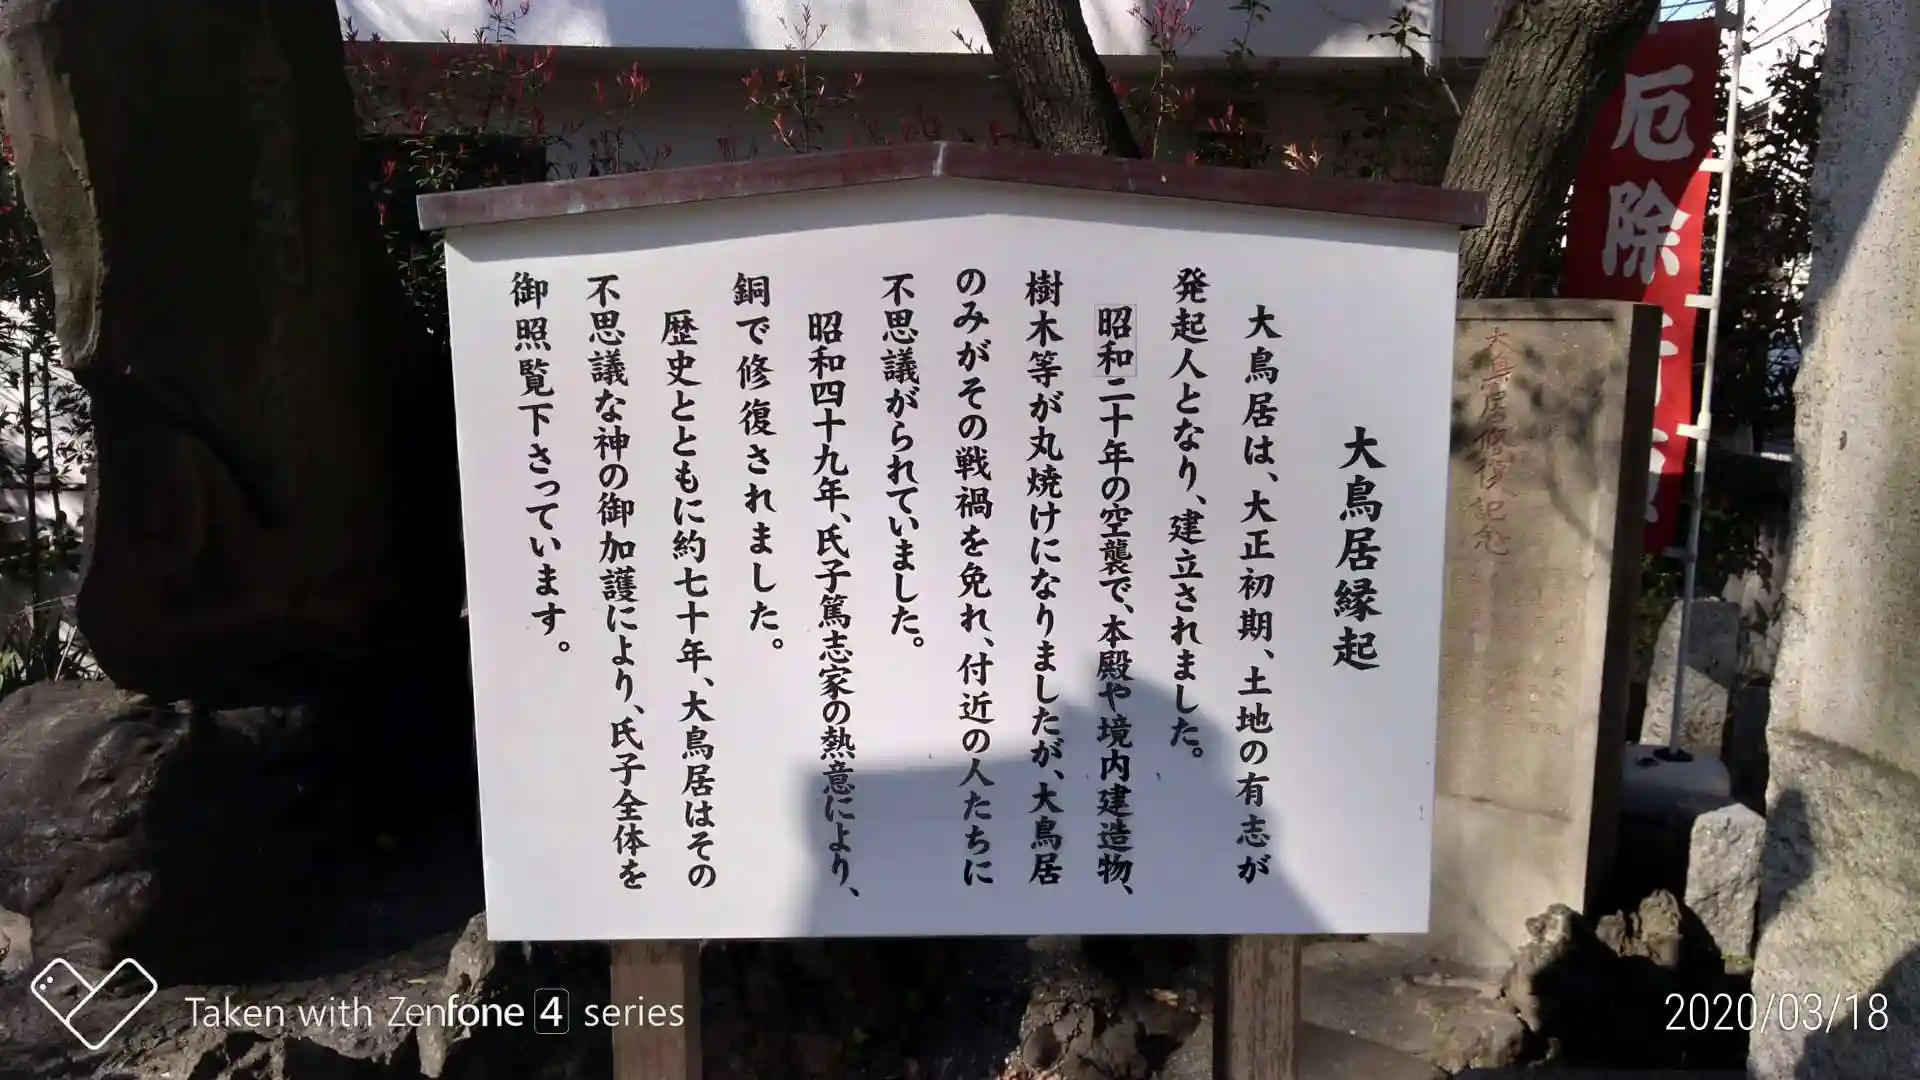 大鳥居縁起
大鳥居は、大正初期、土地の有志が
発起人となり、建立されました。
昭和二十年の空襲で、本殿や境内建造物、
樹木等が丸焼けになりましたが、大鳥居
のみがその戦禍を免れ、付近の人たちに
不思議がられていました。
昭和四十九年、氏子篤志家の熱意により、
銅で修復されました。
歴史とともに約七十年、大鳥居はその
不思議な神の御加護により、氏子全体を
御照覧下さっています。
厄除
大鳥居修復記念
Taken with Zenfone 4 series
2020/03/18